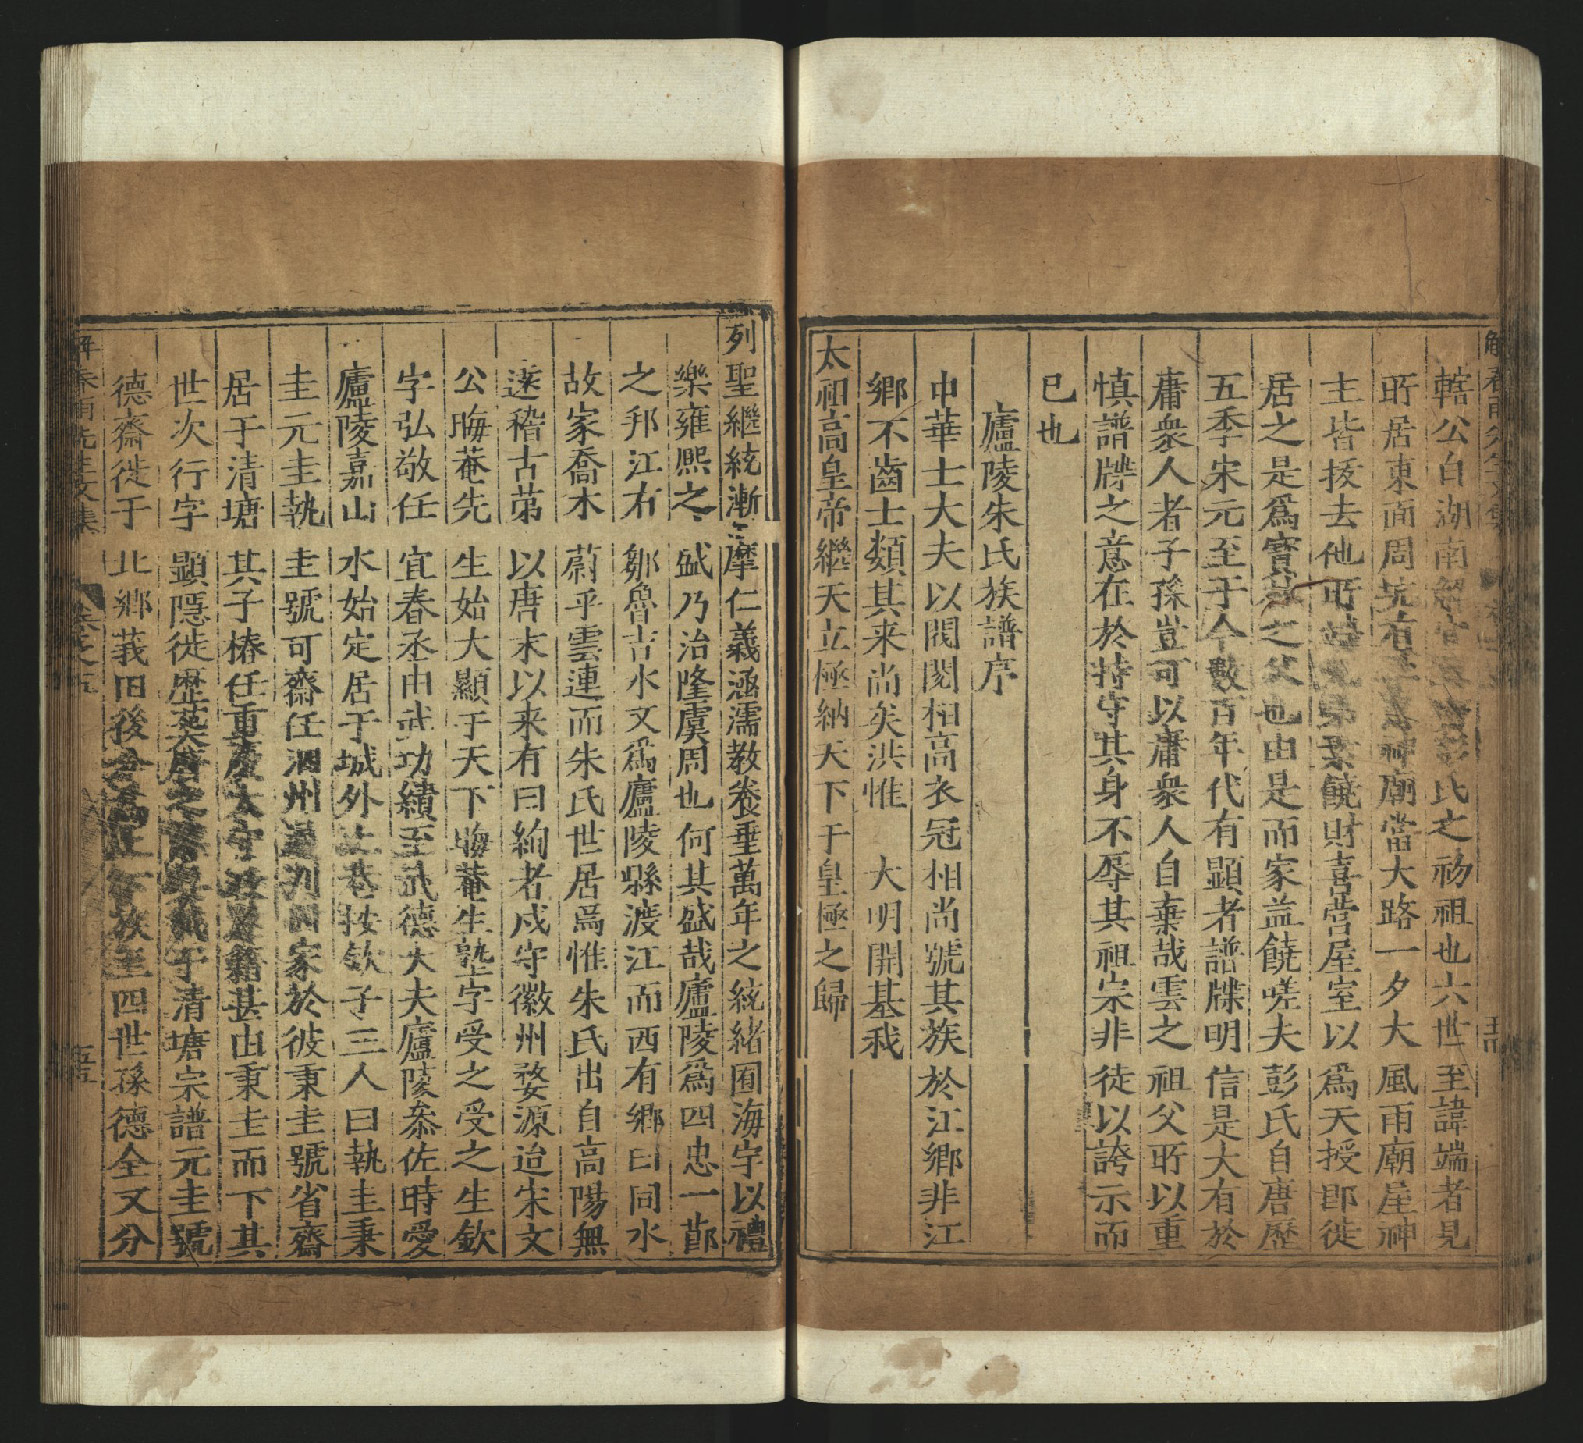 轄公白湖南解官 彭氏之初祖也六世至諱端者見
所居東面周坑有 神廟當大路一夕大風雨廟屋神
主皆拔去他所 饒財喜營屋室以爲天授即徙
居之是爲寳 之父也由是而家益饒嗟夫彭氏自唐歷
五季宋元至于今數百年代有顯者譜牒明信是大有於
庸衆人者子孫豈可以庸衆人自棄哉雲之祖父所以重
慎譜牒之意在於持守其身不辱其祖宗非徒以誇示而
已也
廬陵朱氏族譜序
中華士大夫以閥閱相高衣冠相尚號其族於江鄉非江
鄉不齒士類其来尚矣洪惟 大明開基我
太祖高皇帝繼天立極納天下于皇極之歸
列聖繼統漸摩仁義涵濡教養垂萬年之統緒囿海宇以禮
樂雍熙之盛乃治隆虞周也何其盛哉廬陵爲四忠一節
之邦江右鄒魯吉水文爲廬陵縣渡江而西有鄉曰同水
故家喬木蔚乎雲連而朱氏世居爲惟朱氏出自高陽無
遂稽古苐以唐末以来有曰絢者戍守徽州婺源迨宋文
公晦菴先生始大顯于天下晦菴生塾字受之受之生欽
字弘敬任宜春丞由武功績至武德大夫廬陵叅佐時愛
廬陵嘉山水始定居于城外 巷按欽子三人曰執圭秉
圭元圭執圭號可齋任泗州 家於彼秉圭號省齋
居于清塘其子椿任重慶太守 籍甚由秉圭而下其
世次行字顯隠徙歴 于清塘宗譜元圭號
德齋徙于北鄉莪田後 族至四世孫德全又分